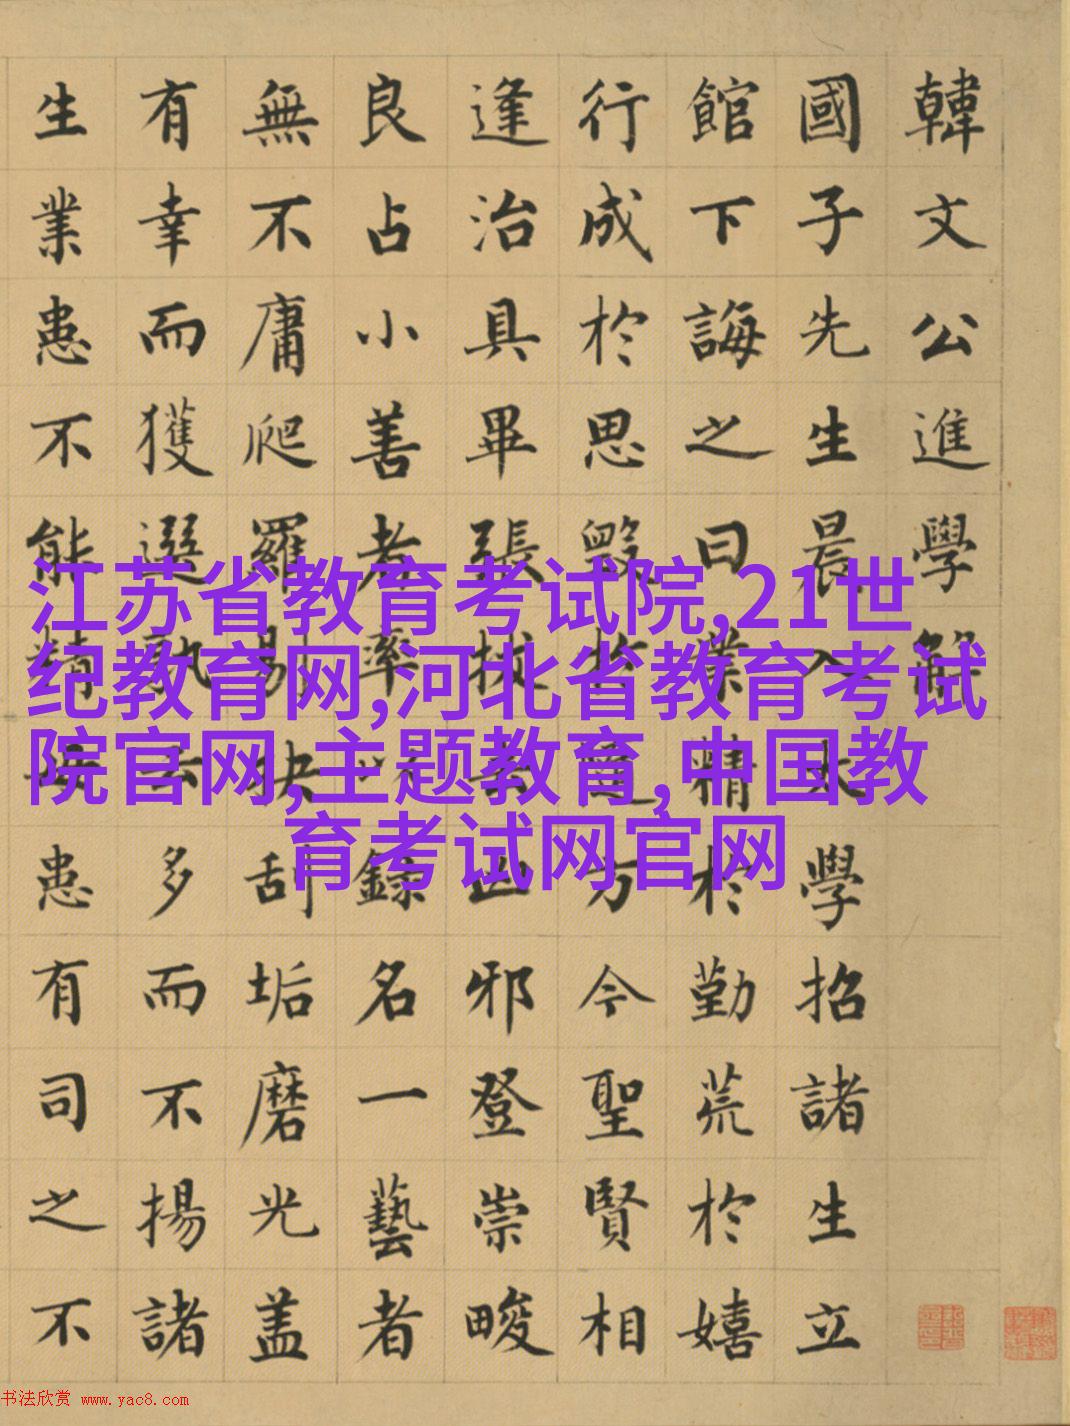 韓文公進學解
國子先生晨入太學招諸生立
館下誨之曰業精於勤荒於嬉
行成於思毀於隨方今聖賢相
逢治具畢張拔去凶邪登崇畯
良占小善者率以錄名一藝者
無不庸爬羅剔抉刮垢磨光盖
有幸而獲選孰云多而不揚諸
生業患不能精患有司之不
江苏省教育考试院,21世
纪教育网,河北省教育考试
院官网,主题教育,中国教
育考试网官网
书法欣赏 www.yac8.com